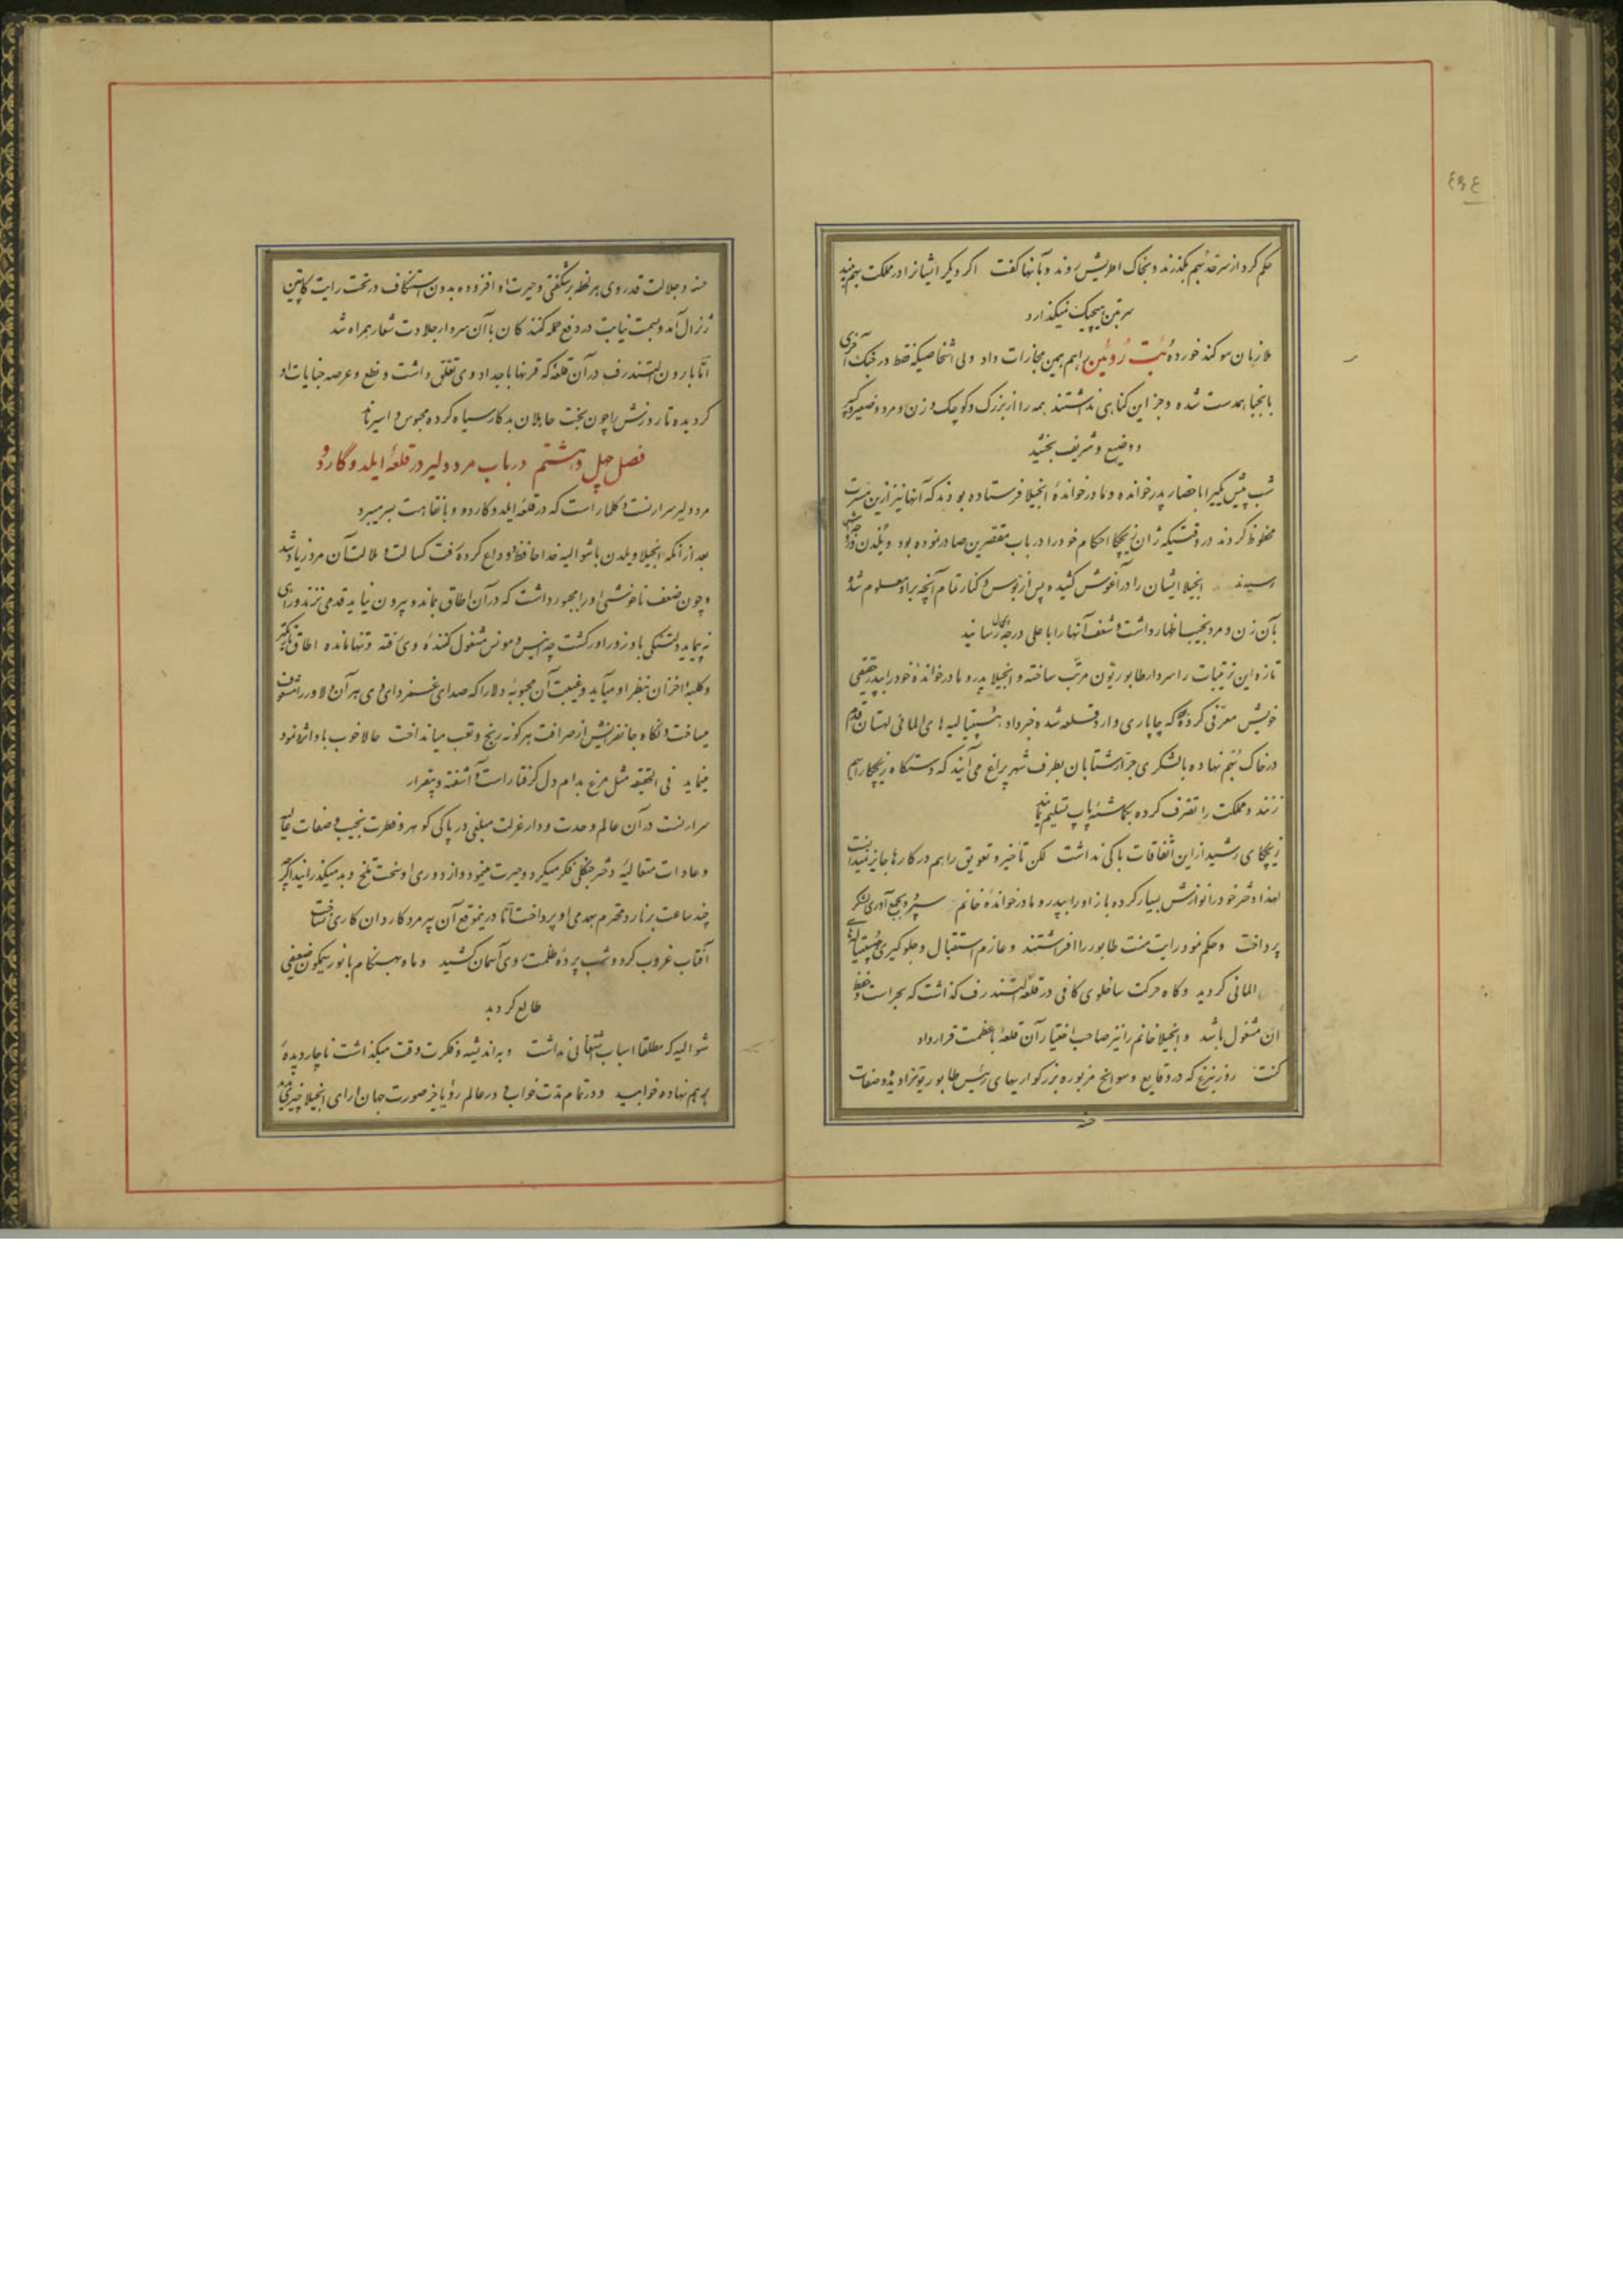 ٤٩٤
حکم کرد از سرحد بهم بگذرند و بخاک اطریش روند و بآنها گفت اگر دیگر ایشانرا در مملکت بهم بیند
سر بتن هیچیک نمیگذارد
ملازمان سوکند خوردهٔ بت روئین را هم بهمین مجازات داد ولی اشخاصیکه فقط در جنک آخری
بانجبا همدست شده و جز این کناهی نداشتند همه را از بزرک و کوچک و زن و مرد و صغیر و کبیر
و وضیع و شریف بخشید
شب پیش یکیرا باحضار پدر خوانده و مادر خواندهٔ انجیلا فرستاده بودند که آنها نیز ازین مسرت
محظوظ کردند در وقتیکه ژان زیچکا احکام خود را در باب مقصرین صادر نموده بود ویلدن و
رسیدند انجیلا ایشان را در آغوش کشیده پس از بوس و کنار تمام آنچه بر او معلوم شد
بآن زن و مرد نجیب اظهار داشت و شعف آنها را با علی درجه کمال رسانید
تازه این ترتیبات را سردار طابوریتون مرتب ساخته و انجیلا پدر و مادر خواندهٔ خود را بپدر حقیقی
خویش معرفی کرده که چاپاری وارد قلعه شده خبر داد هسپتالیه های المانی لهستان قدم
در خاک بهم نهاده با لشکری جرار شتابان بطرف شهر پراغ می آیند که دستکاه زیچکا را بهم
زنند و مملکت را تصرف کرده بکماشتهٔ پاپ تسلیم نمایند
زیچکای رشید از این اتفاقات باکی نداشت لکن تأخیر و تعویق را هم در کارها جایز نمیدانست
لهذا دختر خود را نوازش بسیار کرده باز او را بپدر و مادر خواندهٔ خانم سپرد و بجمع آوری لشکر
پرداخت و حکم نمود رایت منت طابور را افراشتند و عازم استقبال و جلوکیری هسپتالیه های
المانی کردید و کاه حرکت ساخلوی کافی در قلعهٔ التندرف کذاشت که بحراست و حفظ
آن مشغول باشد و انجیلا خانم را نیز صاحب اختیار آن قلعهٔ با عظمت قرار داد
کنت رزنبرغ که در وقایع و سوانح مزبوره بزرکواریهای رئیس طابوریتون را دیده و صفات
حسنه
حسنه و جلالت قدر وی هر لحظه بر شکفتی و حیرت او افزوده بدون استنکاف در تحت رایت کاپیتن
ژنرال آمد و بسمت نیابت در دفع حمله کنندکان با آن سردار جلادت شعار همراه شد
امّا بارون التندرف در آن قلعه که قرنها باجداد وی تعلق داشت و نطع و عرصه جنایات او
کردیده تا روزش را چون بخت جاهلان بدکار سیاه کرده محبوس و اسیر ماند
فصل چهل و هشتم در باب مرد دلیر در قلعهٔ ایلدوگاردو
مرد دلیر سرارنست دکلمار است که در قلعهٔ ایلدوکاردو با نقاهت بسر میبرد
بعد از آنکه انجیلا ویلدن با شوالیه خداحافظ و وداع کرده رفت کسالت و ملالت آن مرد زیاد شد
و چون ضعف ناخوشی او را مجبور داشت که در آن اطاق بماند و بیرون نیاید قدمی نزند و راهی
نه پیماید دلتنکی با و زورآور کشت چه انیس و مونس مشغول کنندهٔ وی رفته و تنها مانده اطاق تاریکتر
و کلبهٔ احزان بنظر او میآید و غیبت آن محبوبهٔ دلارا که صدای غمزدای وی هر آن دلاور را مشعوف
میساخت و نکاه جانفزایش از صرافت هر کونه رنج و تعب میانداخت حالا خوب باو اثر نمود
مینماید فی الحقیقه مثل مرغ بدام دل کرفتار است آشفته و بیقرار
سرارنست در آن عالم وحدت و دار عزلت مبلغی در پاکی کوهر و فطرت نجیب و صفات عالیه
و عادات متعالیهٔ دختر جنکلی فکر میکرد و حیرت مینمود و از دوری او سخت تلخ و بد میکذرانید اکر چه
چند ساعت برنارد محترم بهمدمی او پرداخت امّا در این موقع آن پیرمرد کاردان کاری نساخت
آفتاب غروب کرد و شب پردهٔ ظلمت بروی آسمان کشید و ماه بهنکام با نور نیلکون ضعیفی
طالع کردید
شوالیه که مطلقا اسباب اشتغالی نداشت و به اندیشه و فکرت وقت میکذاشت ناچار دیده
بر هم نهاده خوابید و در تمام مدت خواب در عالم رؤیا جز صورت جهان آرای انجیلا چیزی ندید